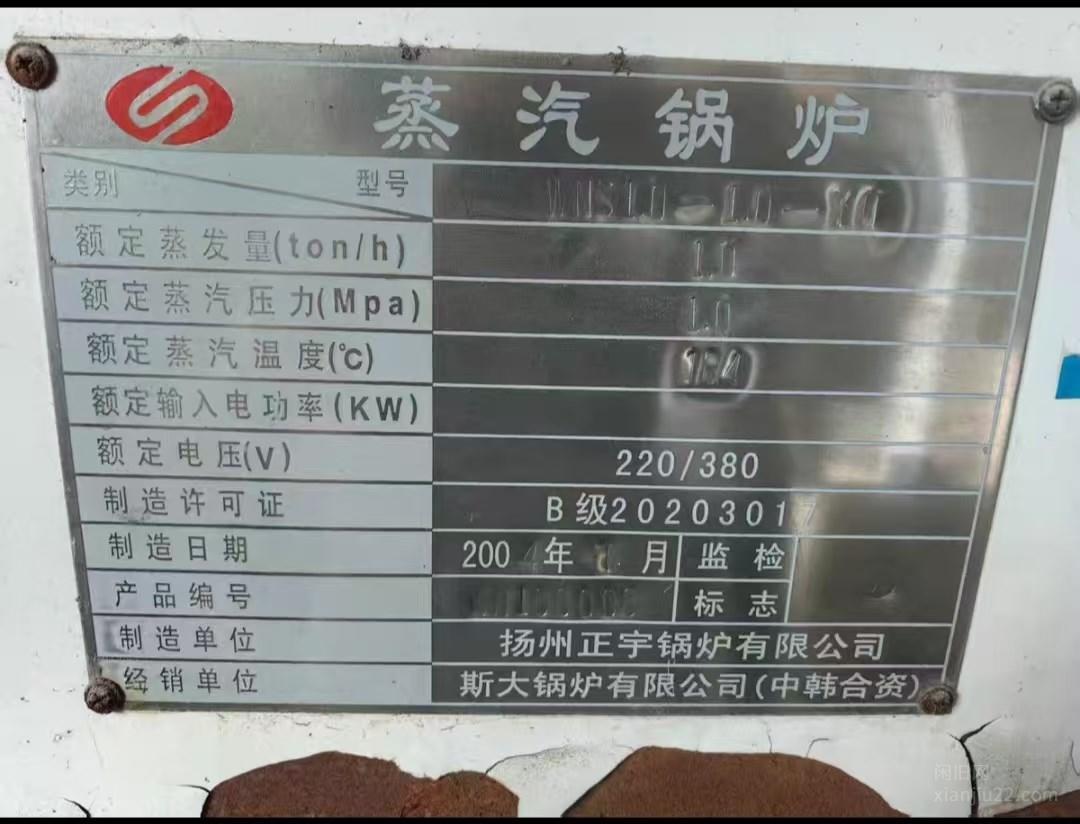 蒸汽锅炉
类别 型号 WNS1.0-1.0-
额定蒸发量(ton/h) 1.0
额定蒸汽压力(Mpa) 1.0
额定蒸汽温度(℃) 184
额定输入电功率(KW)
额定电压(V) 220/380
制造许可证 B级20203017
制造日期 2004年 月 监检
产品编号 标志
制造单位 扬州正宇锅炉有限公司
经销单位 斯大锅炉有限公司(中韩合资)
闲旧网
xianjiu22.com